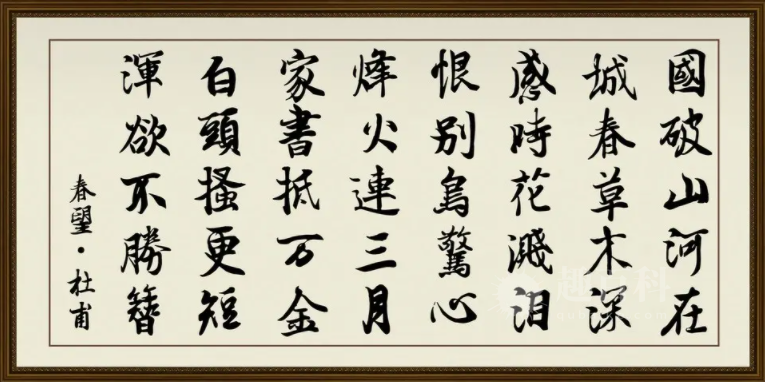 國破山河在
城春草木深
感時花濺泪
恨别鳥驚心
烽火連三月
家書抵万金
白頭搔更短
渾欲不勝簪
春望·杜甫